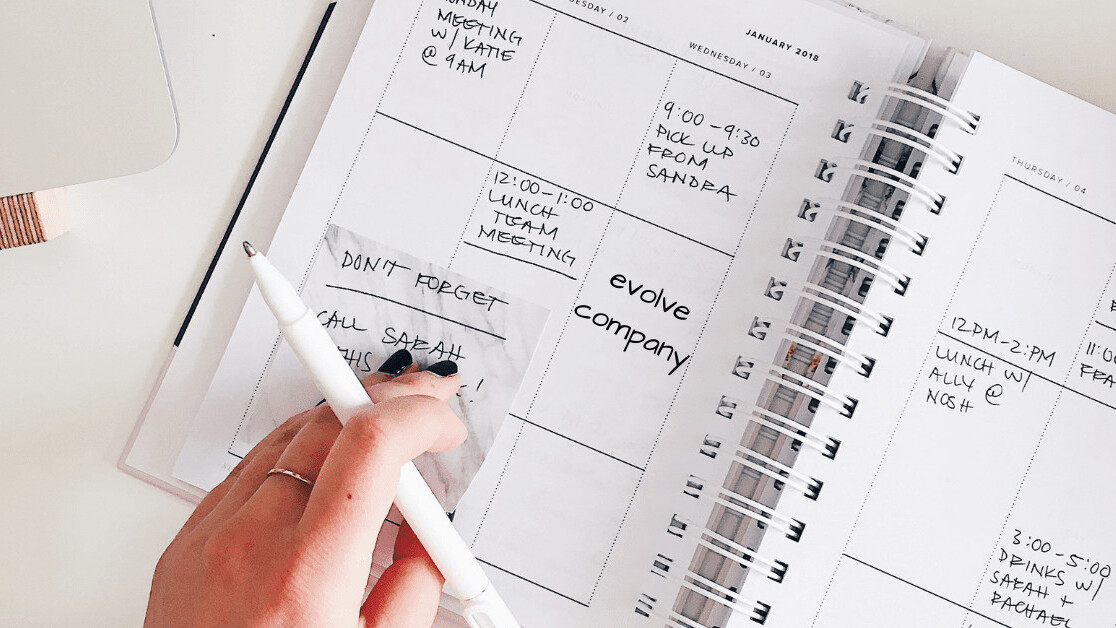 JANUARY 2018
MEETING
W/ KATIE
@ 9AM
/ 02
WEDNESDAY / 03
9:00 - 9:30
PICK UP
FROM
SANDRA
12:00-1:00
LUNCH
TEAM
MEETING
DON'T FORGET
CALL SARAH
evolve
company
THURSDAY / 04
12PM-2:PM
LUNCH W/
ALLY @
NOSH
3:00-5:00
DRINKS W/
SARAH +
RACHAEL